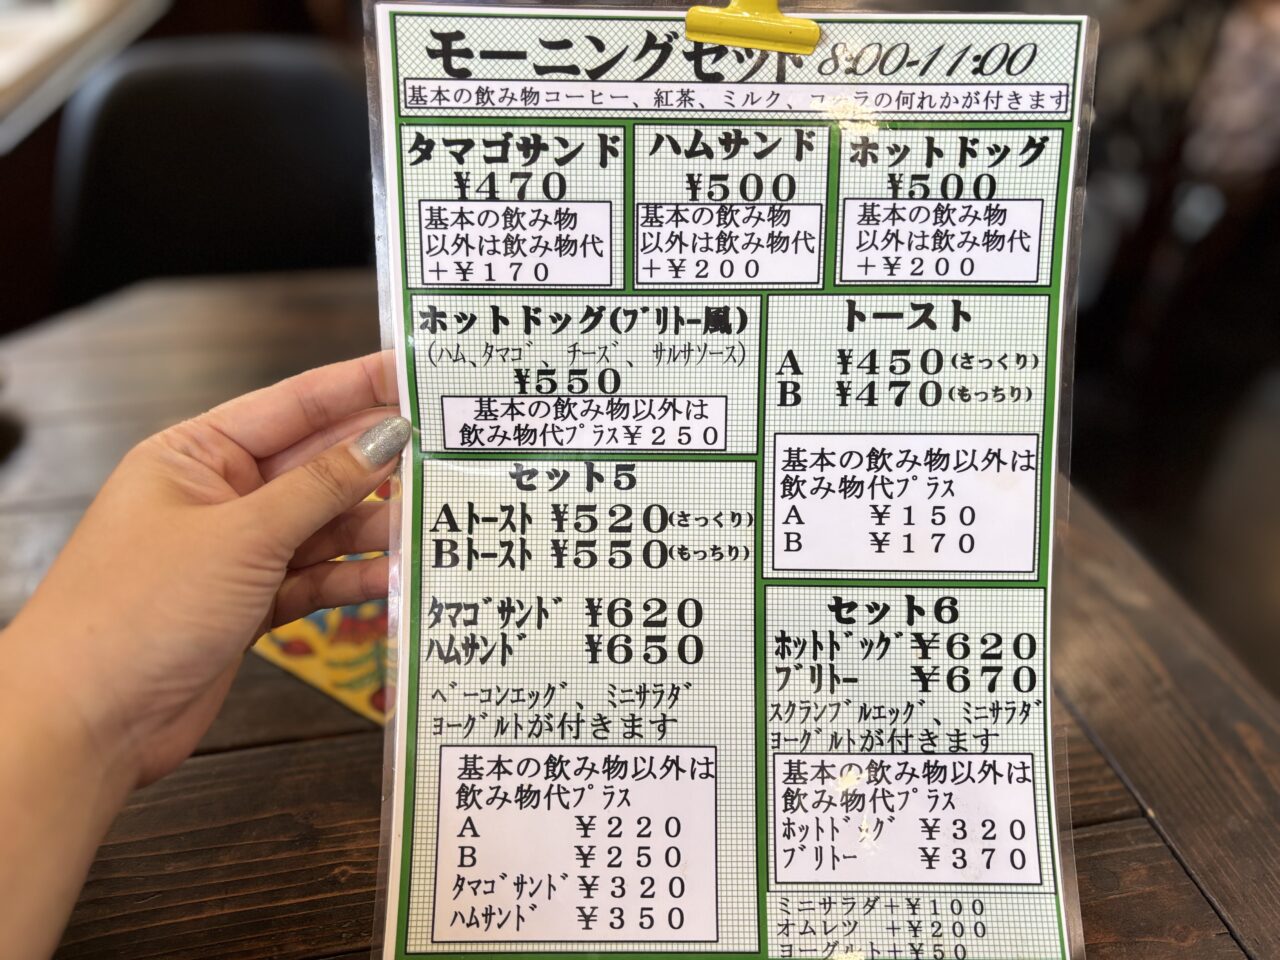 モーニングセット 8:00-11:00
基本の飲み物コーヒー、紅茶、ミルク、コーラの何れかが付きます
タマゴサンド
¥470
基本の飲み物
以外は飲み物代
＋￥１７０
ハムサンド
¥500
基本の飲み物
以外は飲み物代
＋￥２００
ホットドッグ
¥500
基本の飲み物
以外は飲み物代
＋￥２００
ホットドッグ(ﾌﾞﾘﾄｰ風)
(ハム、タマゴ、チーズ、サルサソース)
¥550
基本の飲み物以外は
飲み物代ﾌﾟﾗｽ￥２５０
トースト
A ¥450(さっくり)
B ¥470(もっちり)
基本の飲み物以外は
飲み物代ﾌﾟﾗｽ
A ￥１５０
B ￥１７０
セット５
Aﾄｰｽﾄ ¥520(さっくり)
Bﾄｰｽﾄ ¥550(もっちり)
ﾀﾏｺﾞｻﾝﾄﾞ ¥620
ﾊﾑｻﾝﾄﾞ ¥650
ﾍﾞｰｺﾝｴｯｸﾞ、ﾐﾆｻﾗﾀﾞ
ﾖｰｸﾞﾙﾄが付きます
基本の飲み物以外は
飲み物代ﾌﾟﾗｽ
A ￥２２０
B ￥２５０
ﾀﾏｺﾞｻﾝﾄﾞ ￥３２０
ﾊﾑｻﾝﾄﾞ ￥３５０
セット６
ﾎｯﾄﾄﾞｯｸﾞ ￥620
ﾌﾞﾘﾄｰ ￥670
ｽｸﾗﾝﾌﾞﾙｴｯｸﾞ、ﾐﾆｻﾗﾀﾞ
ﾖｰｸﾞﾙﾄが付きます
基本の飲み物以外は
飲み物代ﾌﾟﾗｽ
ﾎｯﾄﾄﾞｯｸﾞ ￥３２０
ﾌﾞﾘﾄｰ ￥３７０
ミニサラダ＋￥１００
オムレツ ＋￥２００
ヨーグルト＋￥５０